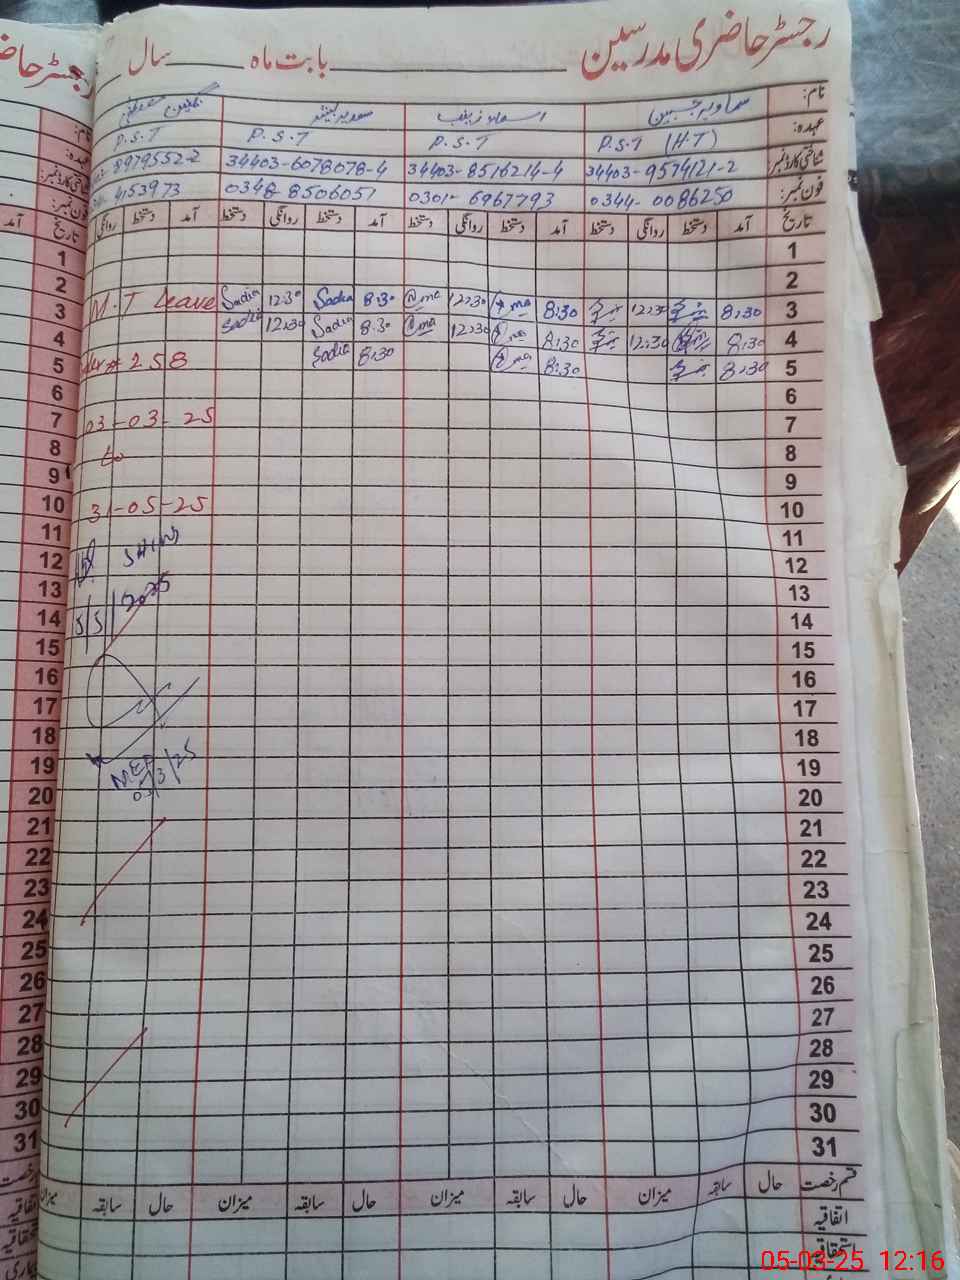 رجسٹر حاضری مدرسین بابت ماہ سال
نام:
عہدہ: P.S.T (H.T) P.S.T P.S.T P.S.T
شناختی کارڈ نمبر: 34403-9574121-2 34403-8516214-4 34403-6078078-4 8979552-2
فون نمبر: 0344-0086250 0301-6967793 0348-8506051 4153973
تاریخ آمد دستخط روانگی دستخط آمد دستخط روانگی دستخط آمد دستخط روانگی دستخط آمد دستخط روانگی
1
2
3 8:30 12:30 8:30 @ma 12:30 @ma 8:30 Sadia 12:30 Sadia M.T Leave
4 8:30 12:30 8:30 @ma 12:30 @ma 8:30 Sadia 12:30 Sadia
5 8:30 8:30 @ma 8:30 Sadia 258
6
7 03-03-25
8 to
9
10 31-05-25
11
12
13
14
15
16
17
18
19 MEA
20
21
22
23
24
25
26
27
28
29
30
31
قسم رخصت حال سابقہ میزان حال سابقہ میزان حال سابقہ میزان حال سابقہ میزان
اتفاقیہ
استحقاقیہ
05-03-25 12:16